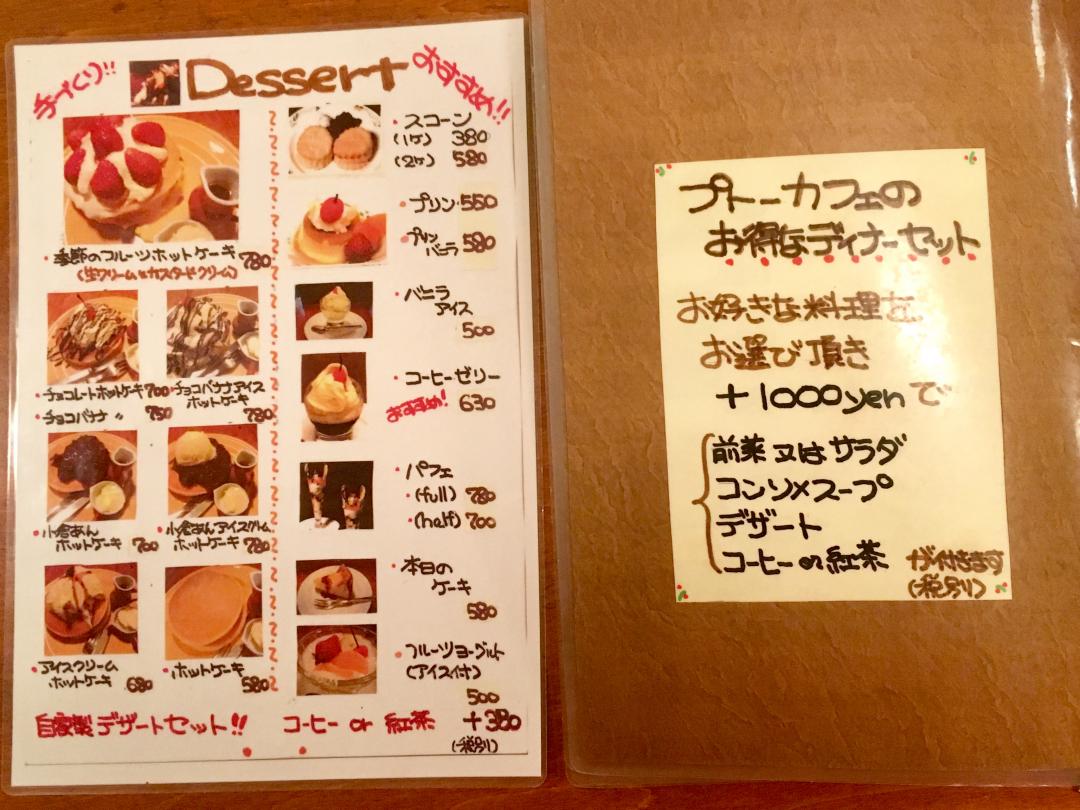 手づくり!!
Dessert
おすすめ!!
・季節のフルーツホットケーキ 780
(生クリーム&カスタードクリーム)
・チョコレートホットケーキ 700
・チョコバナナ 〃 750
・チョコバナナアイス
ホットケーキ 780
・小倉あん
ホットケーキ 700
・小倉あんアイスクリーム
ホットケーキ 780
・アイスクリーム
ホットケーキ 680
・ホットケーキ
580
・スコーン
(1ケ) 380
(2ケ) 580
・プリン 550
・プリン
バニラ 580
・バニラ
アイス
500
・コーヒーゼリー
おすすめ! 630
・パフェ
・(full) 780
・(half) 700
・本日の
ケーキ
580
・フルーツヨーグルト
(アイス付)
500
自家製デザートセット!! コーヒー or 紅茶 +380
(税別)
プトーカフェの
お得なディナーセット
お好きな料理を
お選び頂き
+1000yenで
前菜 又は サラダ
コンソメスープ
デザート
コーヒー or 紅茶 が付きます
(税別)